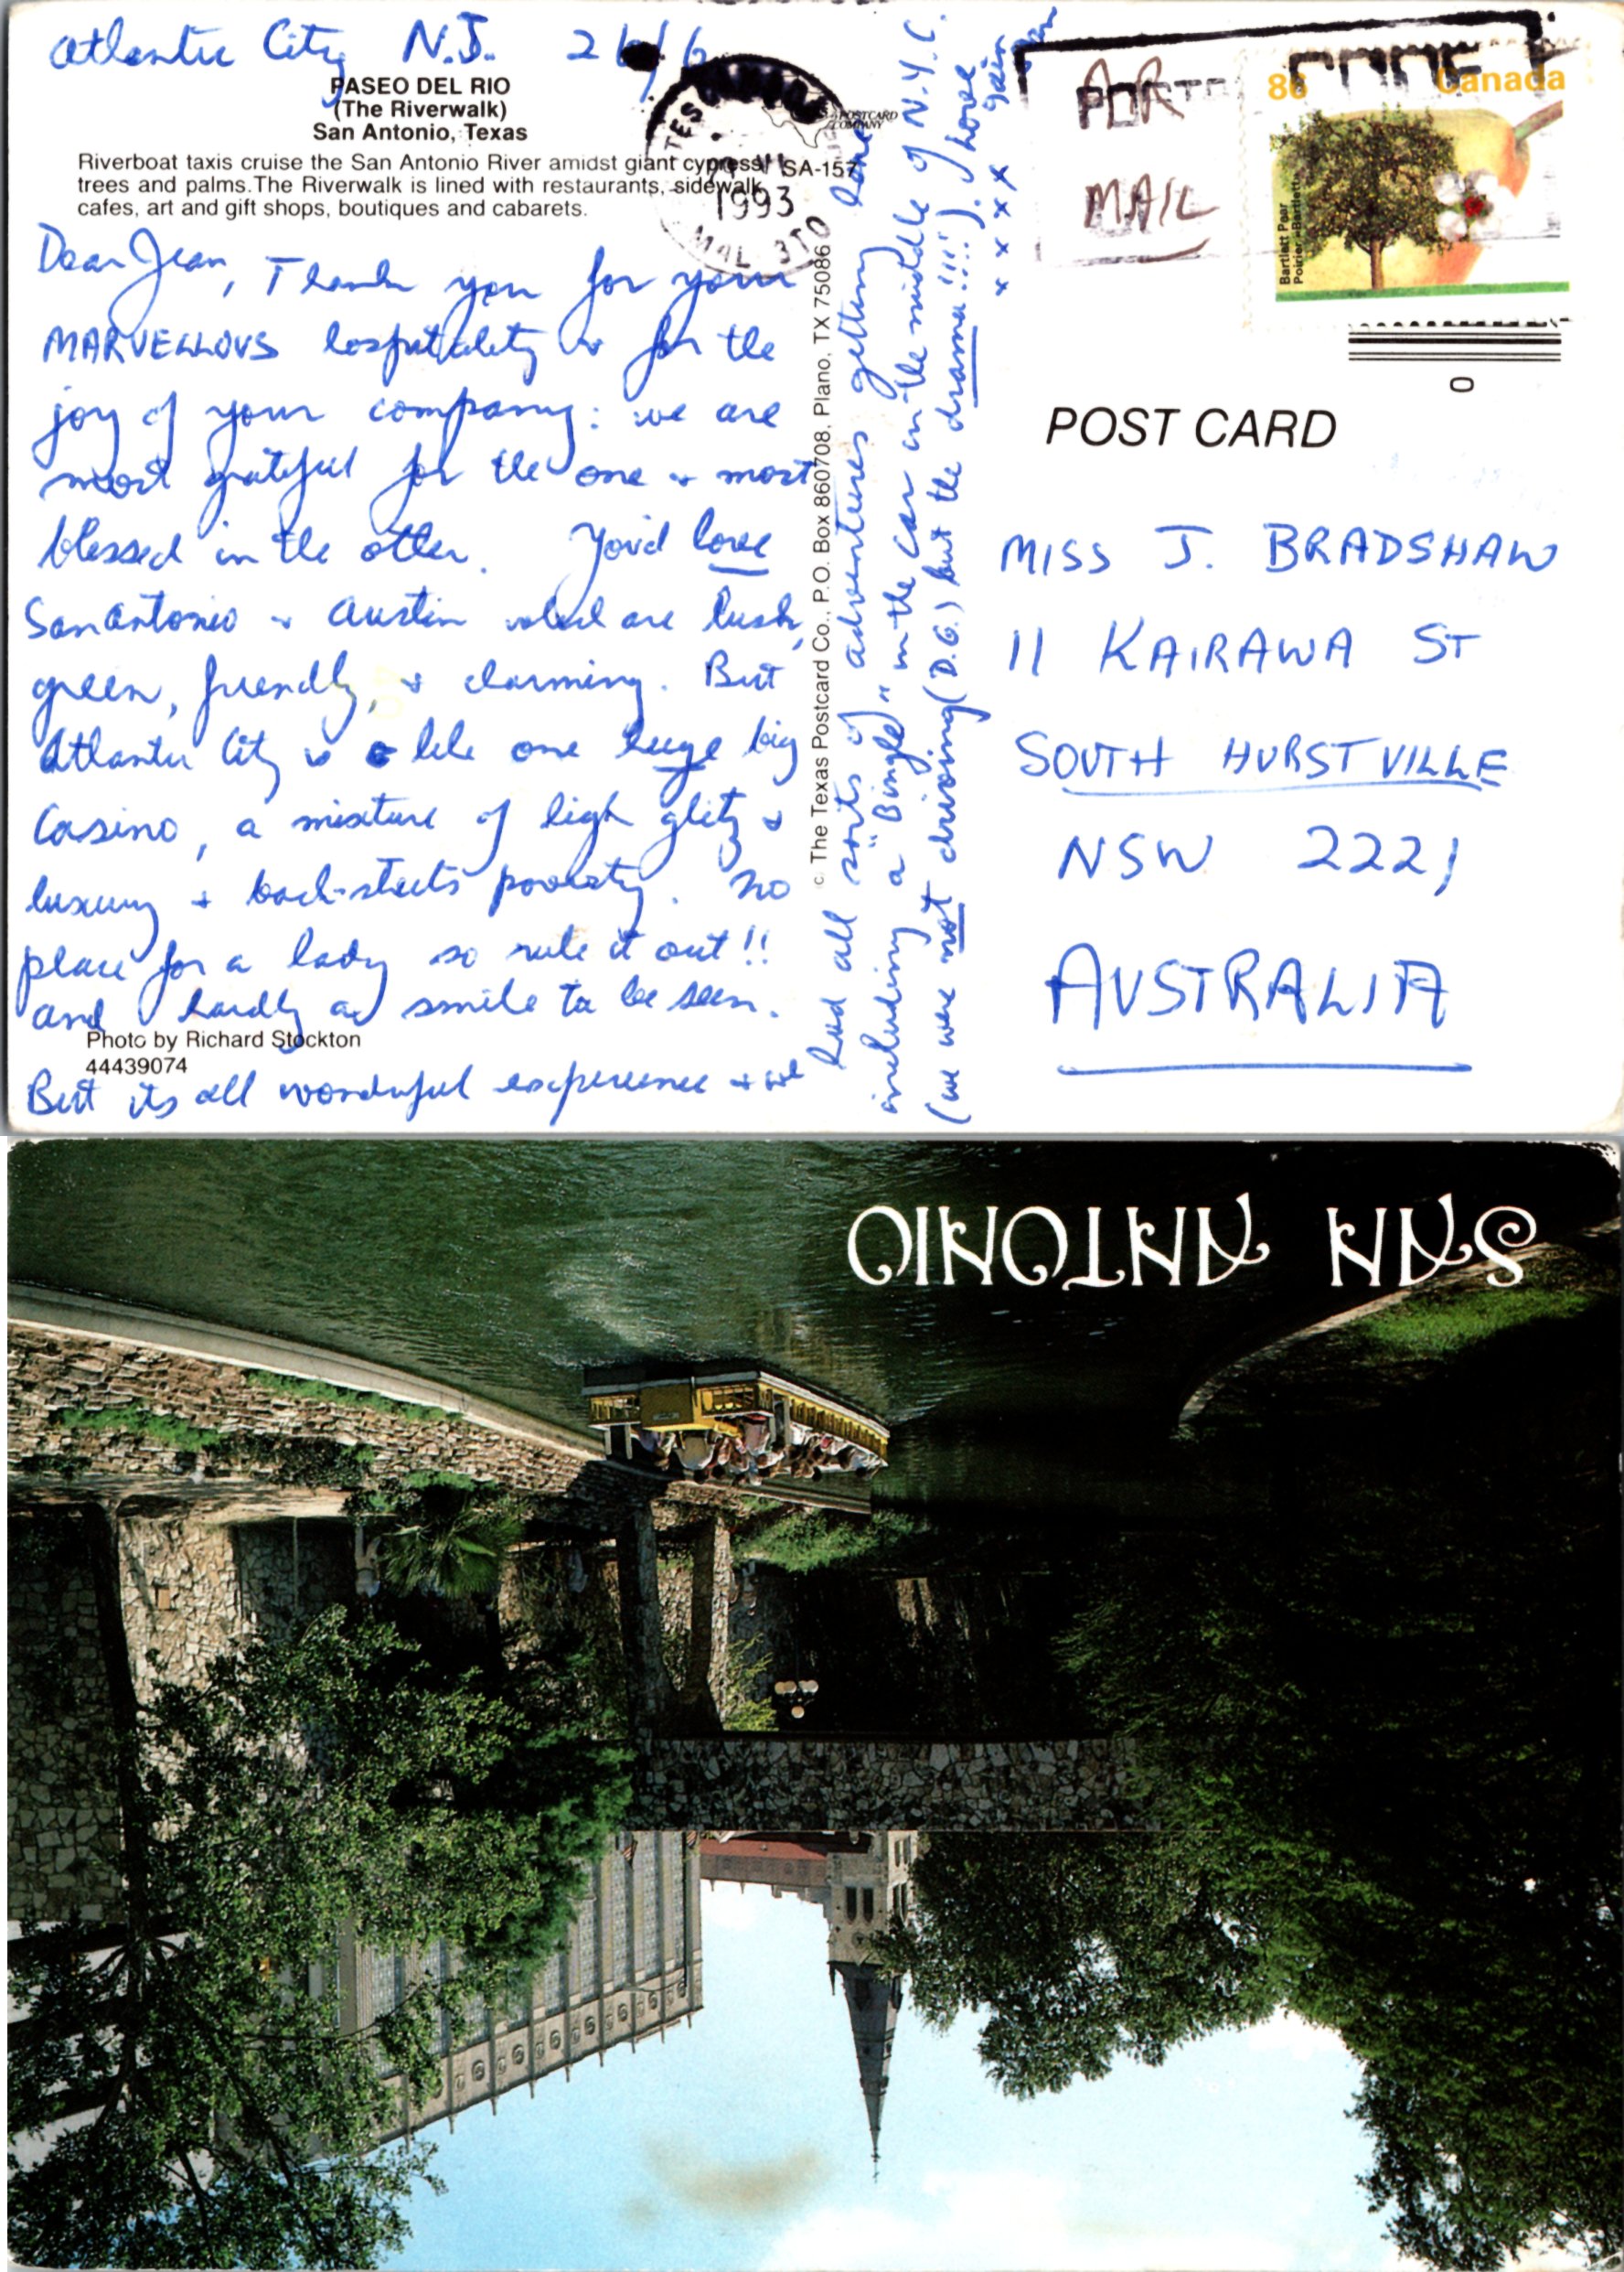 Atlantic City N.J. 26/6
PASEO DEL RIO
(The Riverwalk)
San Antonio, Texas
Riverboat taxis cruise the San Antonio River amidst giant cypress SA-157
trees and palms.The Riverwalk is lined with restaurants, sidewalk
cafes, art and gift shops, boutiques and cabarets.
POSTCARD
COMPANY
1993
MAL STO
Dear Jean, Thank you for your
MARVELLOUS hospitality & for the
joy of your company: we are
most grateful for the one & most
blessed in the other. You'd love
San Antonio & Austin which are lush,
green, friendly, & charming. But
Atlantic City is like one huge big
Casino, a mixture of high glitz &
luxury & back-streets poverty. No
place for a lady so rule it out!!
and hardly a smile to be seen.
Photo by Richard Stockton
44439074
But its all wonderful experience & we
had all sorts of adventures getting here
including a "Bingle" in the car in the middle of N.Y.C.
(we were not driving (D.G.) but the drama!!!!). I love
x x x x
c. The Texas Postcard Co., P.O. Box 860708, Plano, TX 75086
AIR
MAIL
POSTAL CODE
86 Canada
Bartlett Pear
Poirier «Bartlett»
0
POST CARD
MISS J. BRADSHAW
11 KAIRAWA ST
SOUTH HURSTVILLE
NSW 2221
AUSTRALIA
SAN ANTONIO